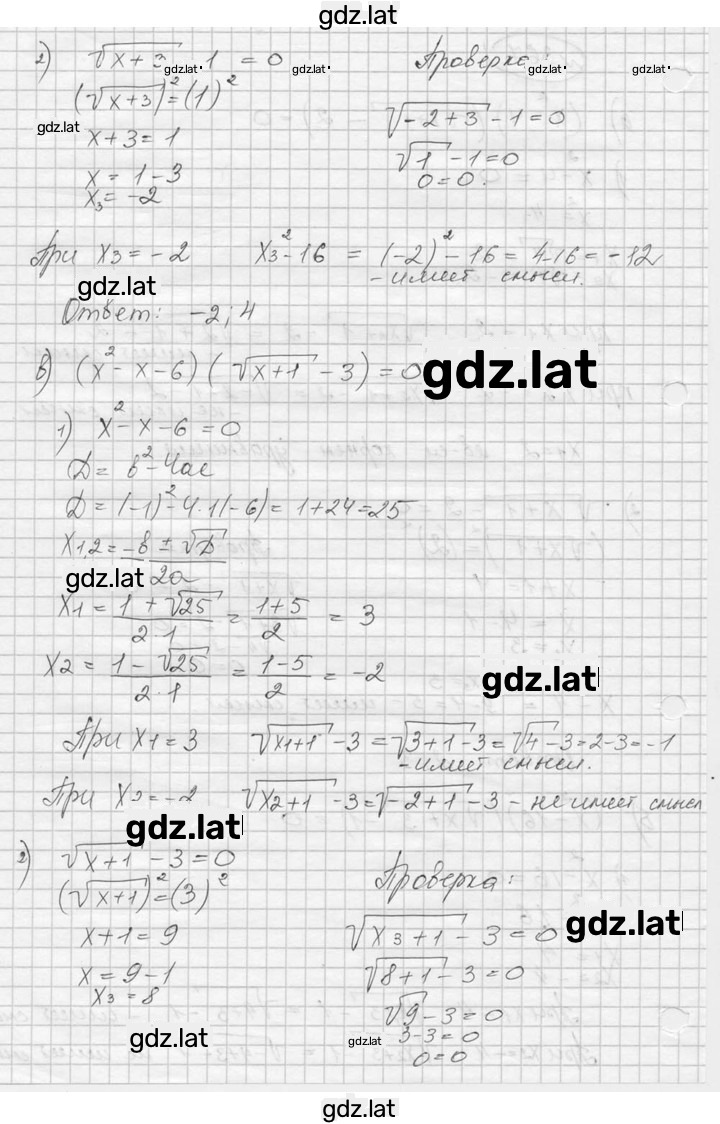 gdz.lat
2) √x+3 - 1 = 0 Проверка:
gdz.lat gdz.lat gdz.lat gdz.lat
(√x+3)² = (1)²
√-2+3 - 1 = 0
gdz.lat
x+3 = 1
√1 - 1 = 0
x = 1-3
0 = 0.
x₃ = -2
При x₃ = -2 x₃² - 16 = (-2)² - 16 = 4-16 = -12
- имеет смысл.
gdz.lat
Ответ: -2; 4
в) (x² - x - 6)(√x+1 - 3) = 0
gdz.lat
1) x² - x - 6 = 0
D = b² - 4ac
D = (-1)² - 4·1(-6) = 1+24 = 25
x1,2 = -b ± √D / 2a
gdz.lat
x1 = 1 + √25 / 2·1 = 1+5 / 2 = 3
x2 = 1 - √25 / 2·1 = 1-5 / 2 = -2
gdz.lat
При x1 = 3 √x1+1 - 3 = √3+1 - 3 = √4 - 3 = 2-3 = -1
- имеет смысл.
При x2 = -2 √x2+1 - 3 = √-2+1 - 3 - не имеет смысл
gdz.lat
2) √x+1 - 3 = 0
Проверка:
(√x+1)² = (3)²
x+1 = 9
√x3+1 - 3 = 0
gdz.lat
x = 9-1
√8+1 - 3 = 0
x₃ = 8
√9 - 3 = 0
3-3 = 0
gdz.lat gdz.lat
0 = 0
gdz.lat